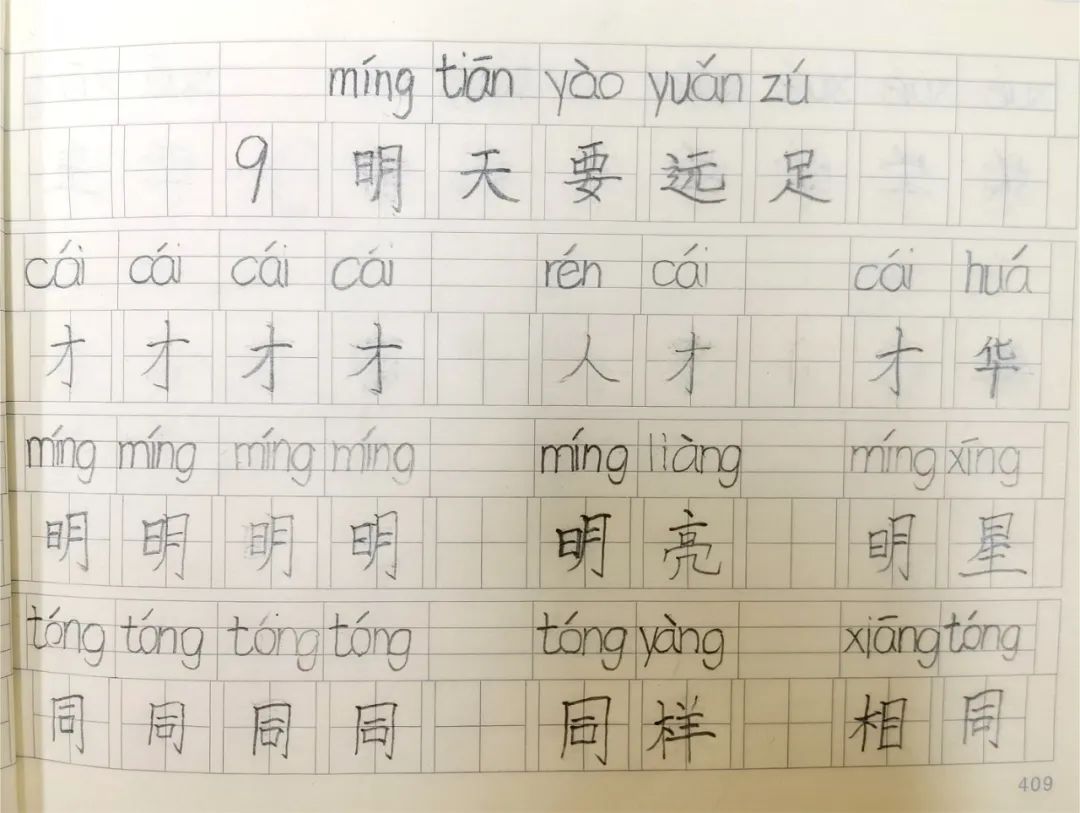 míng tiān yào yuǎn zú
9 明天要远足
cái cái cái cái rén cái cái huá
才 才 才 才 人才 才华
míng míng míng míng míng liàng míng xīng
明 明 明 明 明亮 明星
tóng tóng tóng tóng tóng yàng xiāng tóng
同 同 同 同 同样 相同
409